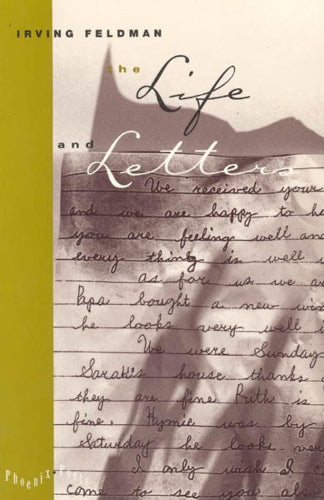 IRVING FELDMAN
the
Life
and
Letters
We received your
and we are happy to he
you are feeling well and
every thing is well
as for us we ar
Papa bought a new win
he looks very well
We were Sunday
Sarah's house thanks
they are fine Ruth is
fine. Hymie was by
Saturday he looks ver
I only wish I c
come to see you also
Phoenix Poets